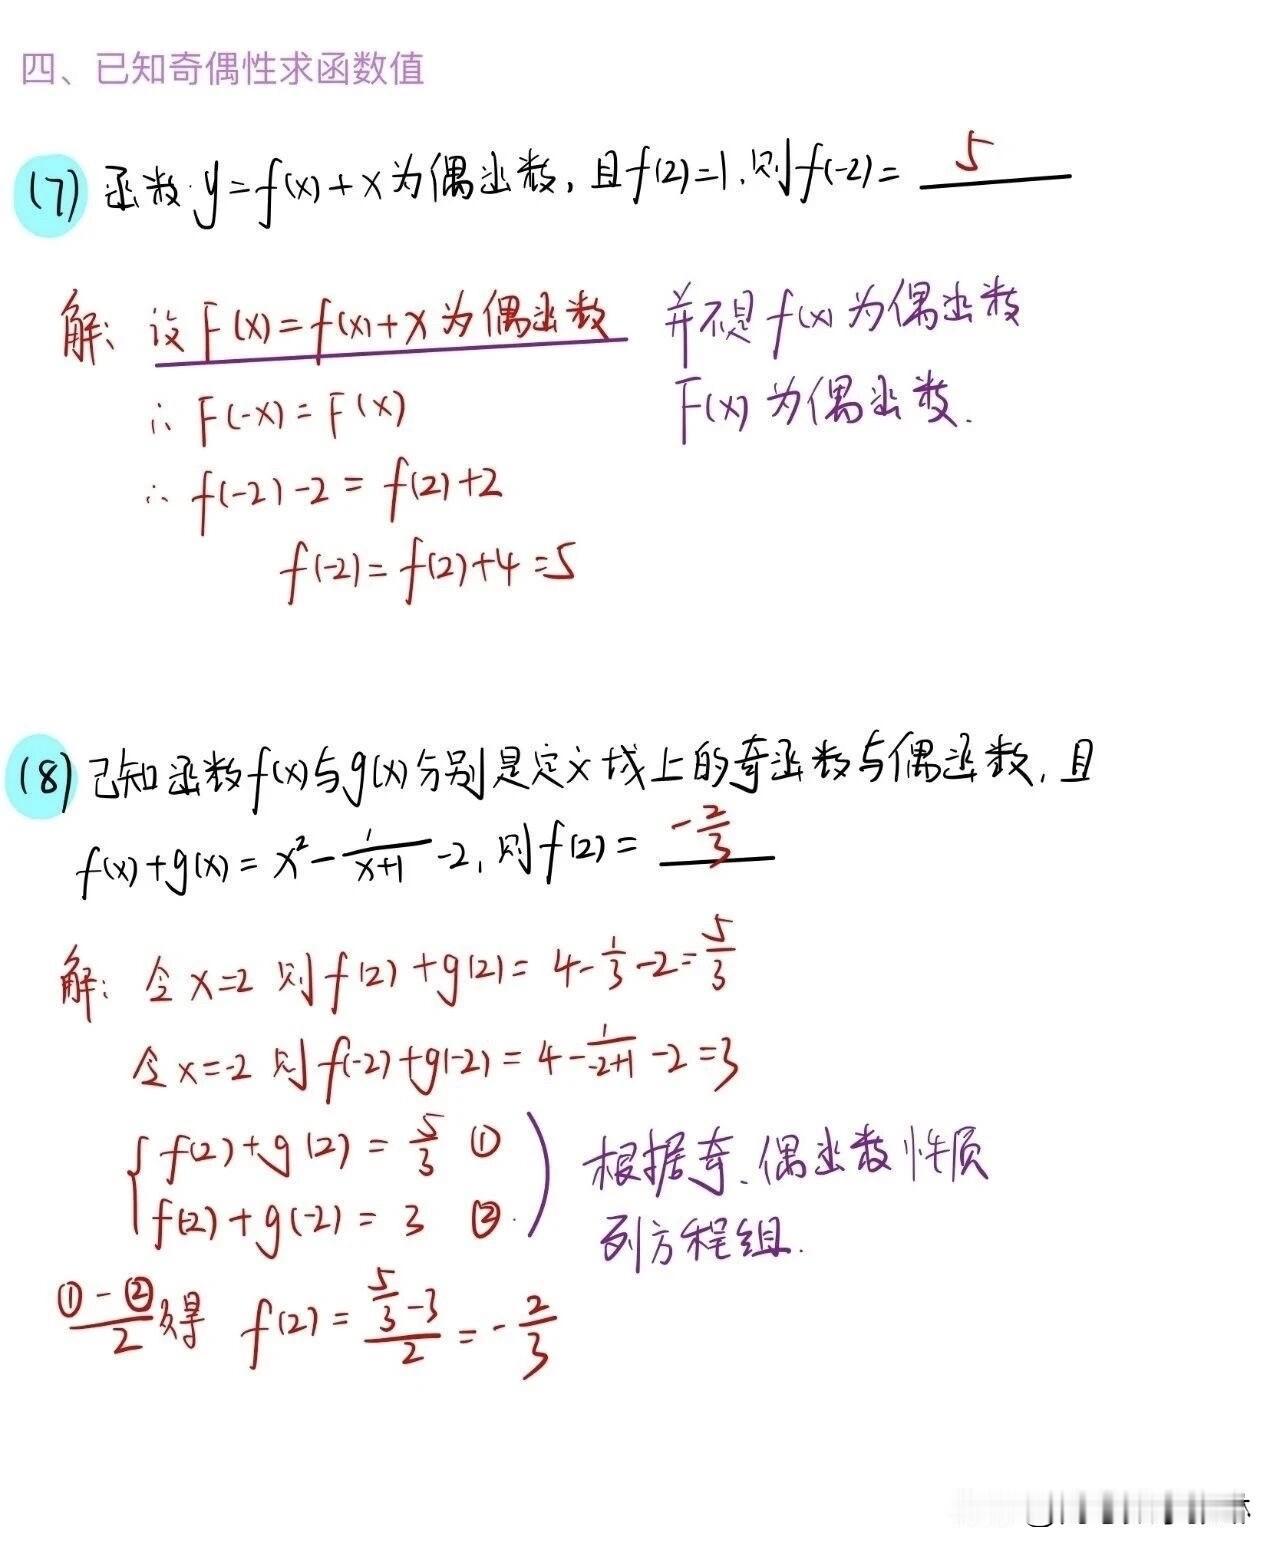 四、已知奇偶性求函数值
(7) 函数 y=f(x)+x 为偶函数, 且f(2)=1.则f(-2)= 5
解: 设 F(x)=f(x)+x 为偶函数 并不是 f(x) 为偶函数
∴ F(-x)=F(x) F(x) 为偶函数.
∴ f(-2)-2 = f(2)+2
f(-2)=f(2)+4=5
(8) 已知函数f(x)与g(x)分别是定义域上的奇函数与偶函数, 且
f(x)+g(x)= x²-1/(x+1)-2, 则f(2)= -2/3
解: 令 x=2 则 f(2)+g(2)= 4-1/3-2=5/3
令 x=-2 则 f(-2)+g(-2)= 4-1/(-2+1)-2=3
{ f(2)+g(2)= 5/3 ① ) 根据奇、偶函数性质
f(-2)+g(-2)= 3 ② 列方程组.
(①-②)/2 得 f(2)= (5/3-3)/2 = -2/3